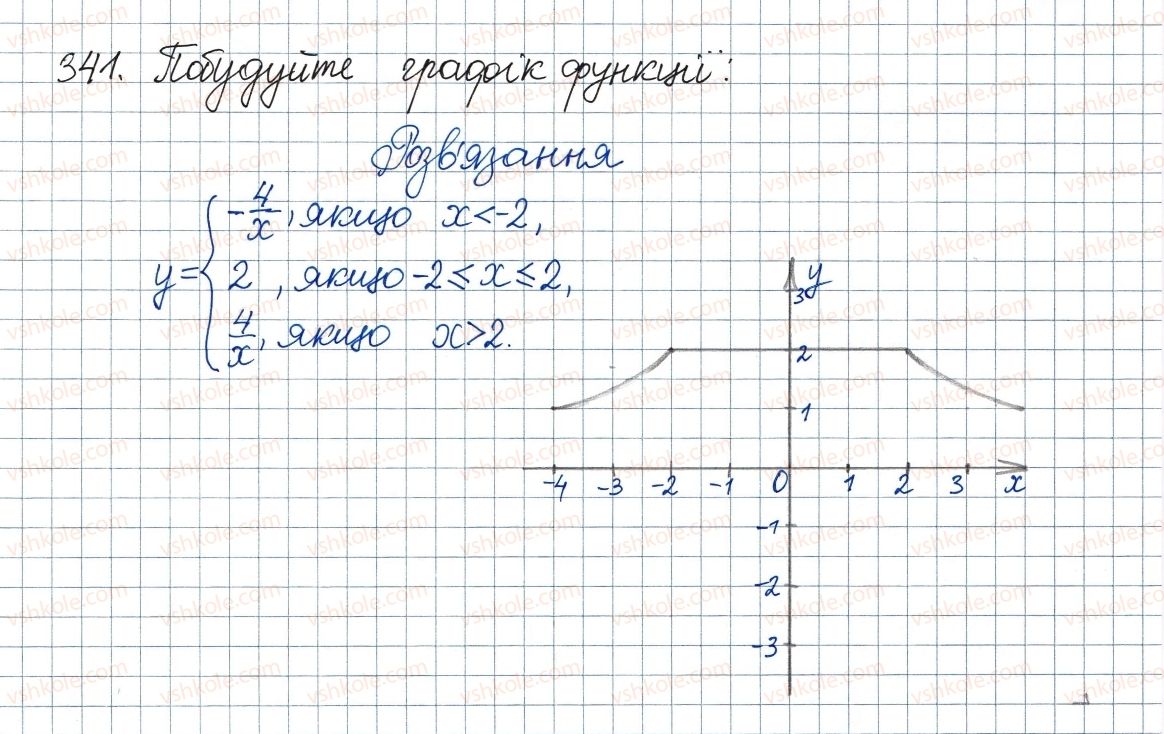 341. Побудуйте графік функції:
Розв'язання
y = { -4/x, якщо x < -2,
2, якщо -2 ≤ x ≤ 2,
4/x, якщо x > 2.
y
3
2
1
-4 -3 -2 -1 0 1 2 3 x
-1
-2
-3
vshkole.com